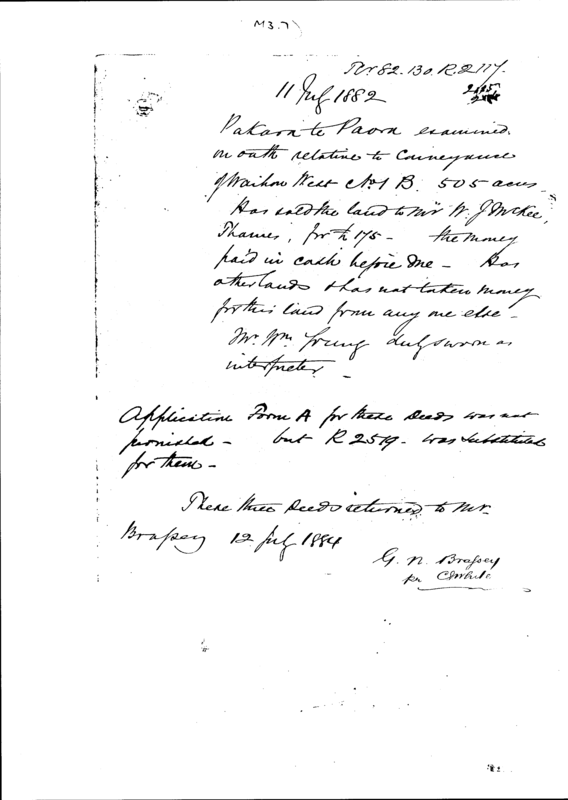 M3.7
Tr 82.130. R.2117.
11 July 1882
Pakara te Paora examined
on oath relative to Conveyance
of Waihou West No 1 B. 505 acres
Has sold the land to Mr W. J McKee,
Thames, for £175 - the money
paid in cash before me - Has
other lands & has not taken money
for this land from any one else -
Mr. Wm Young duly sworn as
interpreter -
Application Form A for these Deeds was not
furnished - but R 2519 - was substituted
for them -
These three Deeds returned to Mr.
Brassey 12 July 1884
G. N. Brassey
pr